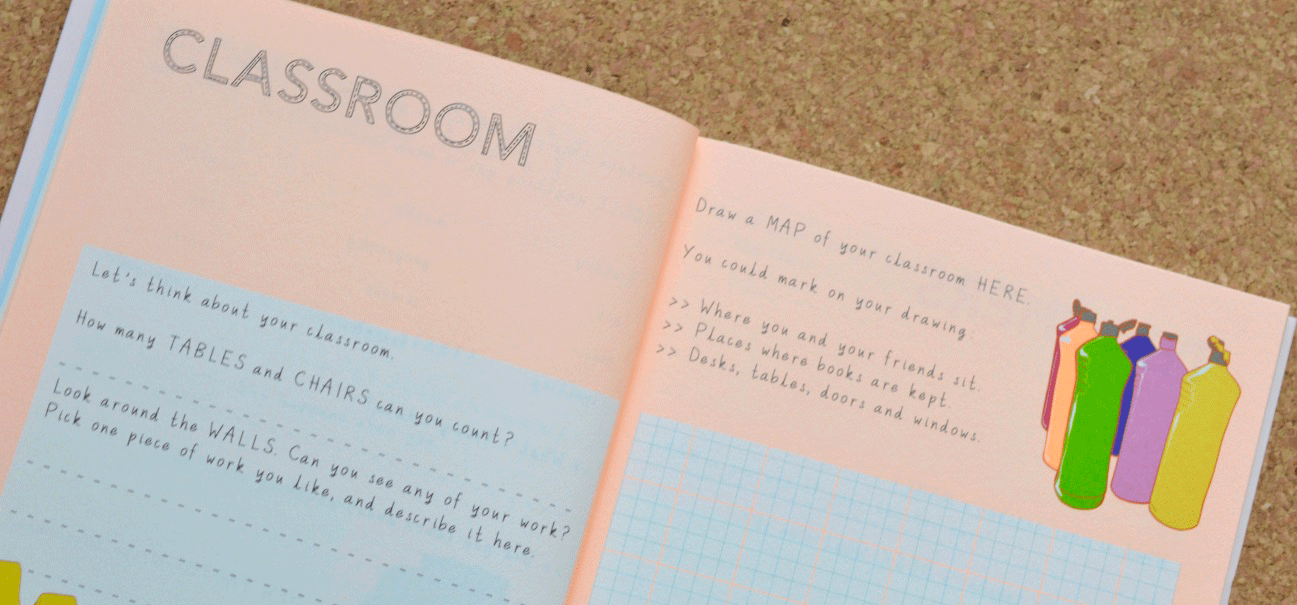 CLASSROOM
Let's think about your classroom.
How many TABLES and CHAIRS can you count?
Look around the WALLS. Can you see any of your work?
Pick one piece of work you like, and describe it here.
Draw a MAP of your classroom HERE.
You could mark on your drawing.
>> Where you and your friends sit.
>> Places where books are kept.
>> Desks, tables, doors and windows.